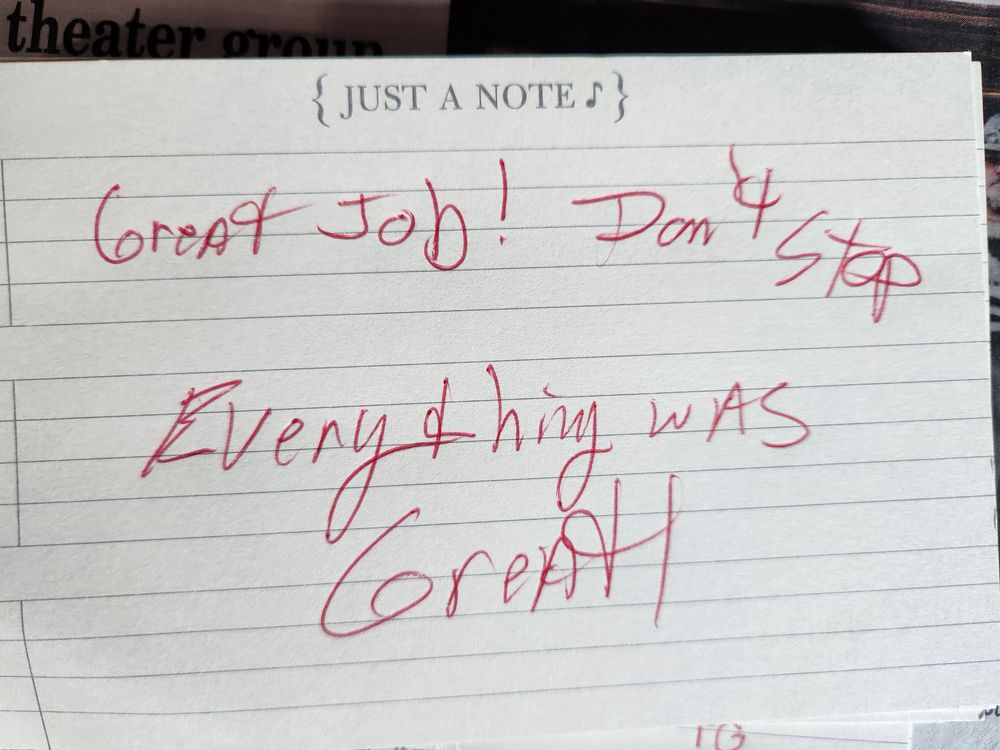 theater group
{ JUST A NOTE ♪ }
Great Job! Don't Stop
Everything was
Great!
TG